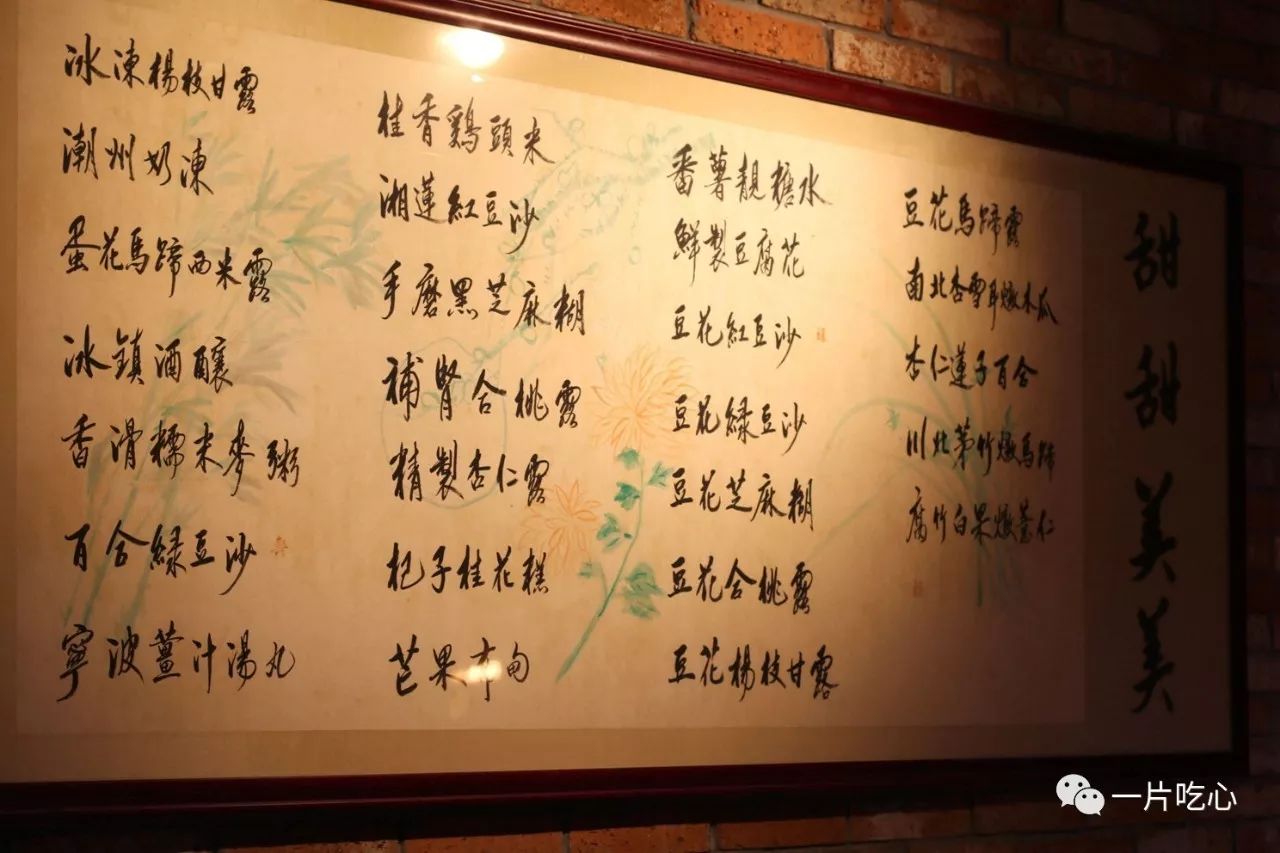 冰凍楊枝甘露
潮州奶凍
蛋花馬蹄西米露
冰鎮酒釀
香滑糯米麥粥
百合綠豆沙
寧波薑汁湯丸
桂香鷄頭米
湘蓮紅豆沙
手磨黑芝麻糊
補腎合桃露
精製杏仁露
杞子桂花糕
芒果布甸
番薯靚糖水
鮮製豆腐花
豆花紅豆沙
豆花綠豆沙
豆花芝麻糊
豆花合桃露
豆花楊枝甘露
豆花馬蹄露
南北杏雪耳燉木瓜
杏仁蓮子百合
川北茅竹燉馬蹄
腐竹白果燉薏仁
甜甜美美
一片吃心